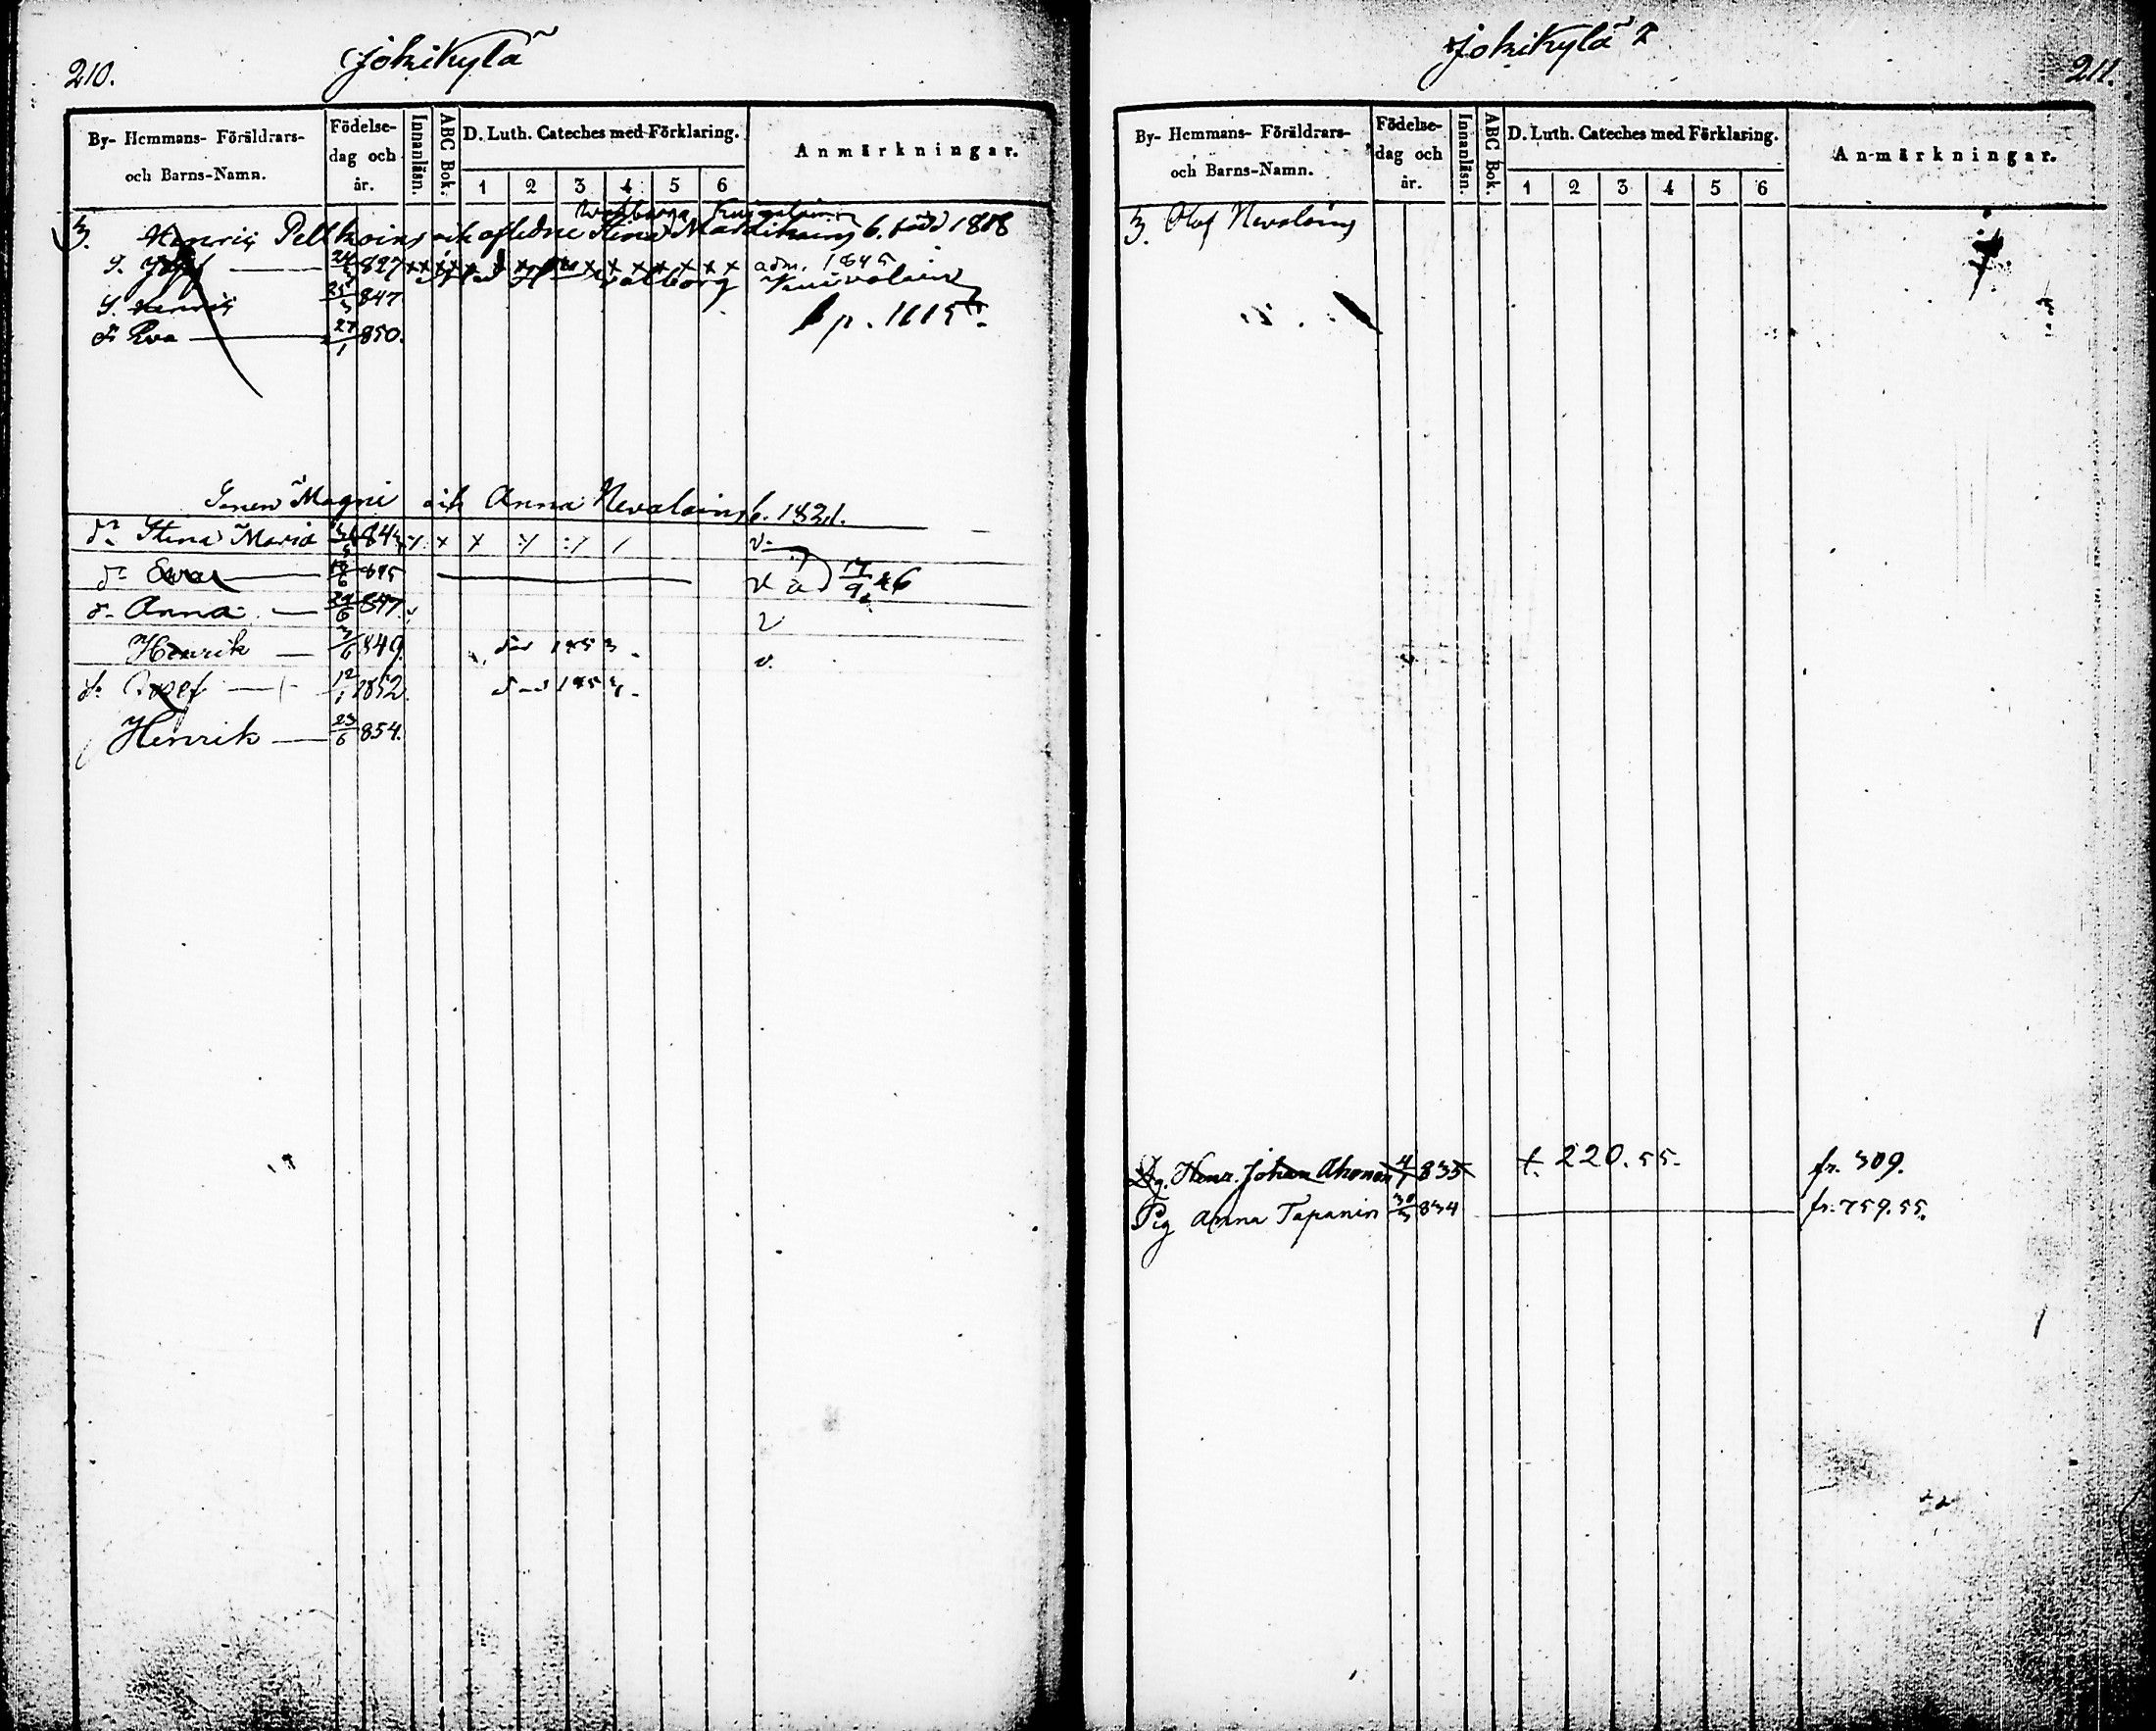 210. Jokikylä
By- Hemmans- Föräldrars- och Barns-Namn.
Födelse- dag och år.
Innanläsn.
ABC Bok.
D. Luth. Cateches med Förklaring.
1 2 3 4 5 6
Anmärkningar.
3. Henric Pelkoin och aflidne Stina b. född 1808
S. 24 827 x x x x x x x x x x adm. 1845
Valborg
S. Henric 25/3 847
p. 1115
dr Eva 27/1 850.
Magni och Anna Nevalain b. 1821.
dr Stina Maria 843 x x
dr Eva 6 845 17/9 46
dr Anna 6 847
Henrik 3/6 849. död 1853.
S. Josef 12/1 1852. död 1853.
Henrik 23/6 854.
Jokikylä 211.
By- Hemmans- Föräldrars- och Barns-Namn.
Födelse- dag och år.
Innanläsn.
ABC Bok.
D. Luth. Cateches med Förklaring.
1 2 3 4 5 6
Anmärkningar.
3. Olof Nevalain
Dg. Henr. Johan Ahonen 4/1 835 t. 220. 55. fr. 309.
Pig Anna Tapanin 30/3 834 fr. 759. 55.